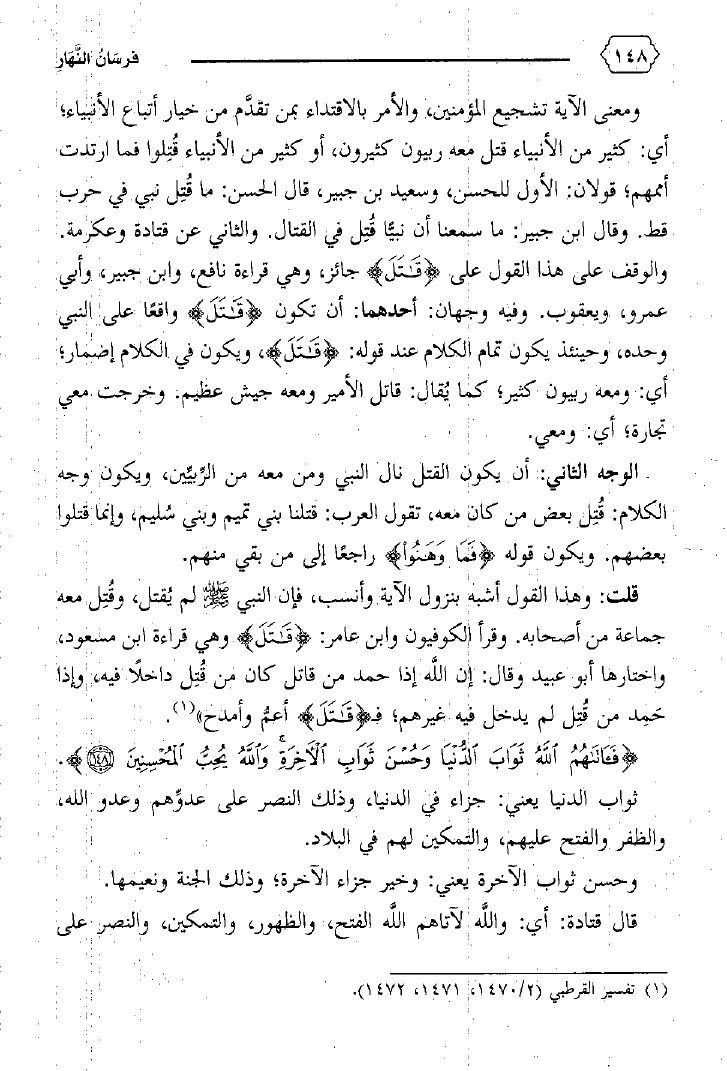 ١٤٨
فرسَانُ النَّهَارِ
ومعنى الآية تشجيع المؤمنين، والأمر بالاقتداء بمن تقدَّم من خيار أتباع الأنبياء؛
أي: كثير من الأنبياء قتل معه ربيون كثيرون، أو كثير من الأنبياء قُتِلوا فما ارتدت
أممهم؛ قولان: الأول للحسن، وسعيد بن جبير، قال الحسن: ما قُتِل نبي في حرب
قط. وقال ابن جبير: ما سمعنا أن نبيًّا قُتِل في القتال. والثاني عن قتادة وعكرمة.
والوقف على هذا القول على ﴿قَـٰتَلَ﴾ جائز، وهي قراءة نافع، وابن جبير، وأبي
عمرو، ويعقوب. وفيه وجهان: أحدهما: أن تكون ﴿قَـٰتَلَ﴾ واقعًا على النبي
وحده، وحينئذ يكون تمام الكلام عند قوله: ﴿قَـٰتَلَ﴾، ويكون في الكلام إضمار؛
أي: ومعه ربيون كثير؛ كما يُقال: قاتل الأمير ومعه جيش عظيم. وخرجت معي
تجارة؛ أي: ومعي.
الوجه الثاني: أن يكون القتل نال النبي ومن معه من الرِّبيِّين، ويكون وجه
الكلام: قُتِل بعض من كان معه، تقول العرب: قتلنا بني تميم وبني سُليم، وإنما قتلوا
بعضهم. ويكون قوله ﴿فَمَا وَهَنُواْ﴾ راجعًا إلى من بقي منهم.
قلت: وهذا القول أشبه بنزول الآية وأنسب، فإن النبي ﷺ لم يُقتل، وقُتِل معه
جماعة من أصحابه. وقرأ الكوفيون وابن عامر: ﴿قَـٰتَلَ﴾ وهي قراءة ابن مسعود،
واختارها أبو عبيد وقال: إن اللَّه إذا حمد من قاتل كان من قُتِل داخلًا فيه، وإذا
حَمِد من قُتِل لم يدخل فيه غيرهم؛ فـ﴿قَـٰتَلَ﴾ أعمُّ وأمدح»(١).
﴿فَـَٔاتَىٰهُمُ ٱللَّهُ ثَوَابَ ٱلدُّنْيَا وَحُسْنَ ثَوَابِ ٱلْأَخِرَةِۗ وَٱللَّهُ يُحِبُّ ٱلْمُحْسِنِينَ ۝١٤٨﴾.
ثواب الدنيا يعني: جزاء في الدنيا، وذلك النصر على عدوِّهم وعدو الله،
والظفر والفتح عليهم، والتمكين لهم في البلاد.
وحسن ثواب الآخرة يعني: وخير جزاء الآخرة؛ وذلك الجنة ونعيمها.
قال قتادة: أي: واللَّه لآتاهم اللَّه الفتح، والظهور، والتمكين، والنصر على
(١) تفسير القرطبي (١٤٧٠/٢، ١٤٧١، ١٤٧٢).